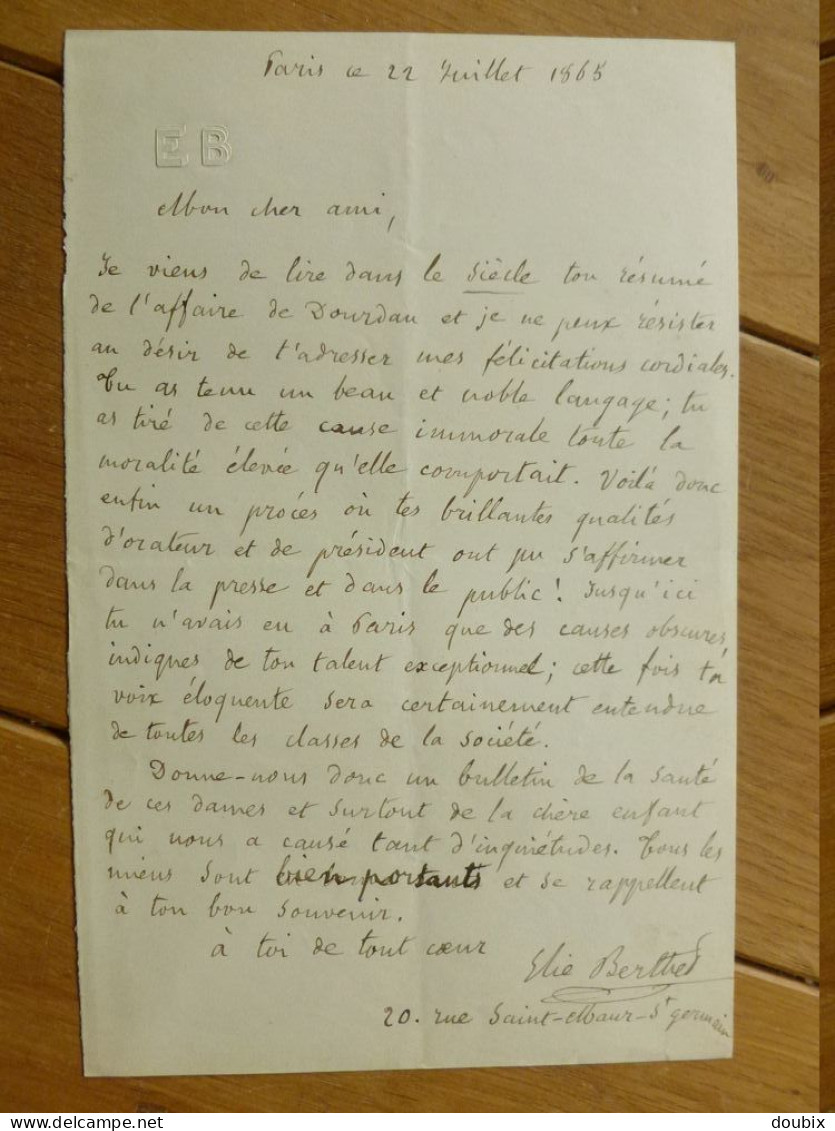 Paris ce 22 Juillet 1865
EB
Mon cher ami,
Je viens de lire dans le Siècle ton résumé
de l'affaire de Dourdan et je ne peux résister
au désir de t'adresser mes félicitations cordiales.
Tu as tenu un beau et noble langage; tu
as tiré de cette cause immorale toute la
moralité élevée qu'elle comportait. Voilà donc
enfin un procés où tes brillantes qualités
d'orateur et de président ont pu s'affirmer
dans la presse et dans le public! Jusqu'ici
tu n'avais eu à Paris que des causes obscures,
indignes de ton talent exceptionnel; cette fois ta
voix éloquente sera certainement entendue
de toutes les classes de la société.
Donne-nous donc un bulletin de la santé
de ces dames et surtout de la chère enfant
qui nous a causé tant d'inquiétudes. Tous les
miens sont bien portants et se rappellent
à ton bon souvenir.
à toi de tout cœur
Elie Berthet
20. rue Saint-Maur-St germain
doubix